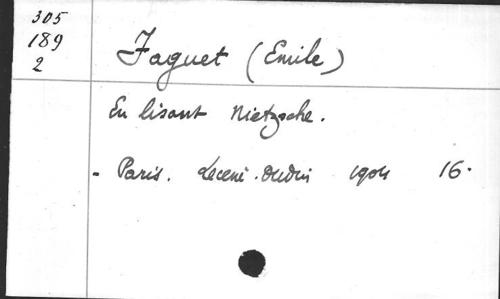 305
189
2
Faguet (Emile)
En lisant Nietzsche.
- Paris. Lecène. Oudin 1904 16.